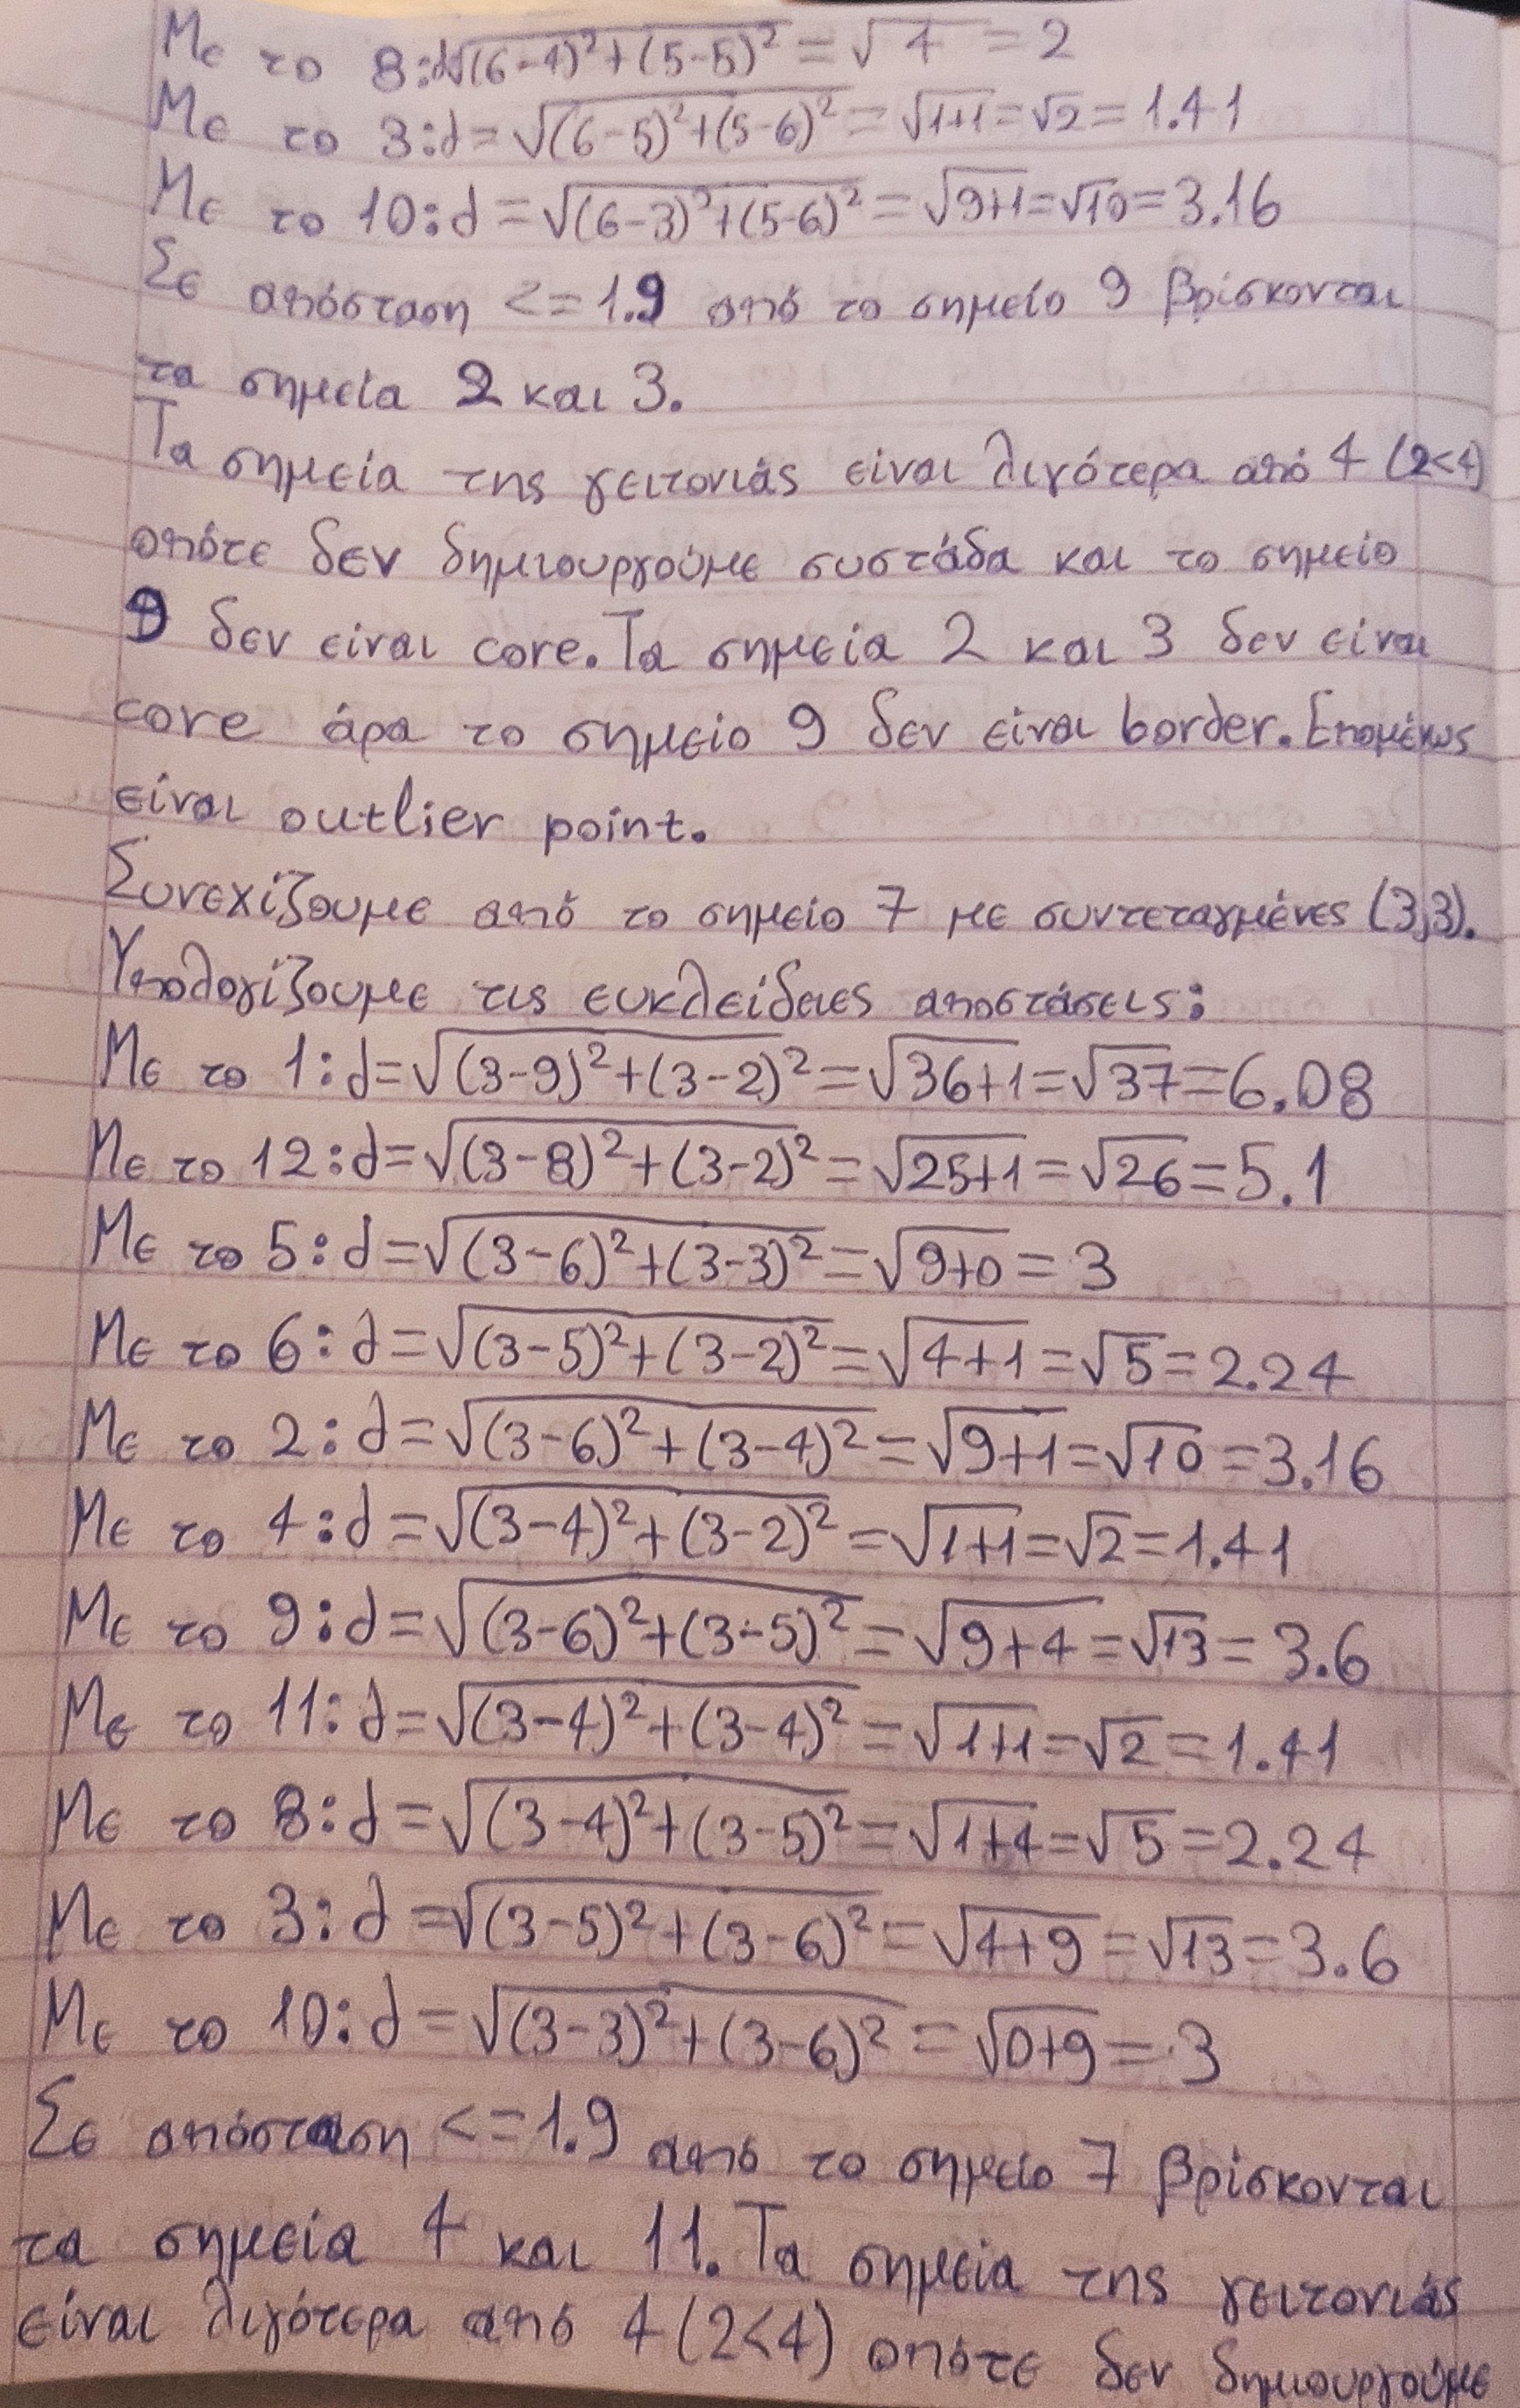 Με το 8:d√(6-4)²+(5-5)² = √4 = 2
Με το 3:d = √(6-5)²+(5-6)² = √1+1 = √2 = 1.41
Με το 10:d = √(6-3)²+(5-6)² = √9+1 = √10 = 3.16
Σε απόσταση <= 1.9 από το σημείο 9 βρίσκονται
τα σημεία 2 και 3.
Τα σημεία της γειτονιάς είναι λιγότερα από 4 (2<4)
οπότε δεν δημιουργούμε συστάδα και το σημείο
9 δεν είναι core. Τα σημεία 2 και 3 δεν είναι
core άρα το σημείο 9 δεν είναι border. Επομένως
είναι outlier point.
Συνεχίζουμε από το σημείο 7 με συντεταγμένες (3,3).
Υπολογίζουμε τις ευκλείδειες αποστάσεις:
Με το 1:d = √(3-9)²+(3-2)² = √36+1 = √37 = 6.08
Με το 12:d = √(3-8)²+(3-2)² = √25+1 = √26 = 5.1
Με το 5:d = √(3-6)²+(3-3)² = √9+0 = 3
Με το 6:d = √(3-5)²+(3-2)² = √4+1 = √5 = 2.24
Με το 2:d = √(3-6)²+(3-4)² = √9+1 = √10 = 3.16
Με το 4:d = √(3-4)²+(3-2)² = √1+1 = √2 = 1.41
Με το 9:d = √(3-6)²+(3-5)² = √9+4 = √13 = 3.6
Με το 11:d = √(3-4)²+(3-4)² = √1+1 = √2 = 1.41
Με το 8:d = √(3-4)²+(3-5)² = √1+4 = √5 = 2.24
Με το 3:d = √(3-5)²+(3-6)² = √4+9 = √13 = 3.6
Με το 10:d = √(3-3)²+(3-6)² = √0+9 = 3
Σε απόσταση <= 1.9 από το σημείο 7 βρίσκονται
τα σημεία 4 και 11. Τα σημεία της γειτονιάς
είναι λιγότερα από 4 (2<4) οπότε δεν δημιουργούμε